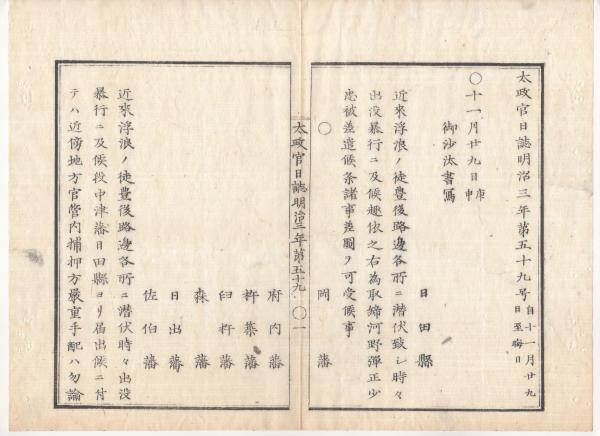 太政官日誌明治三年第五十九号 自十一月廿九日至晦日
〇十一月廿九日 庚申
御沙汰書寫
日田縣
近來浮浪ノ徒豊後路邊各所ニ潜伏致シ時々
出没暴行ニ及候趣依之右為取締河野彈正少
忠被差遣候条諸事差圖ヲ可受候事
〇 岡藩
太政官日誌明治三年第五十九 〇一
府内藩
杵築藩
臼杵藩
森藩
日出藩
佐伯藩
近來浮浪ノ徒豊後路邊各所ニ潜伏時々出没
暴行ニ及候段中津藩日田縣ヨリ届出候ニ付
テハ近傍地方官管内捕押方嚴重手配ハ勿論